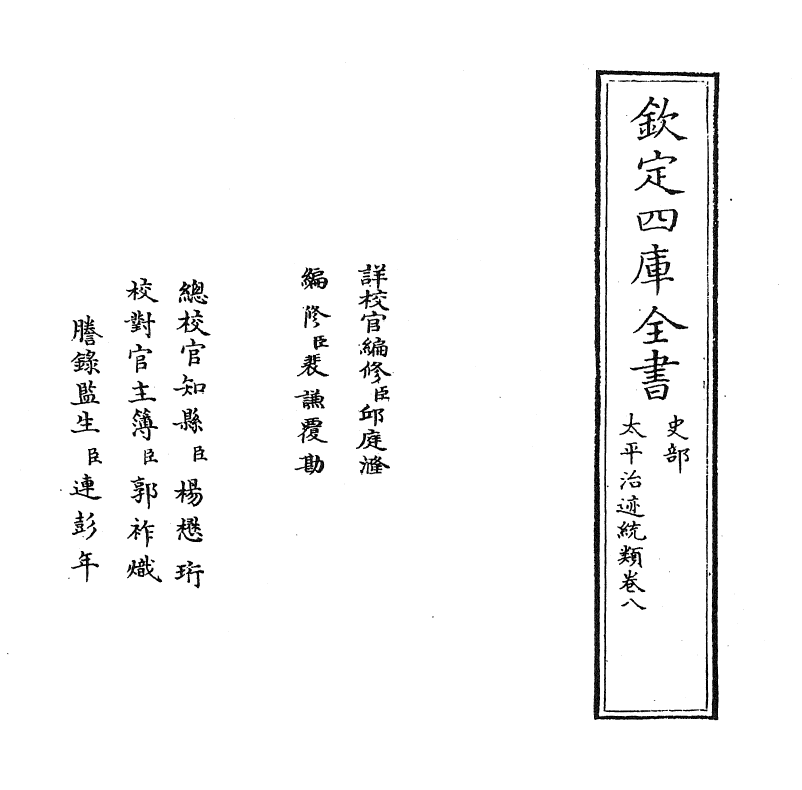 欽定四庫全書
史部
太平治迹統類卷八
詳校官編修臣邱庭漋
編修臣裴謙覆勘
總校官知縣臣楊懋珩
校對官主簿臣郭祚熾
謄錄監生臣連彭年